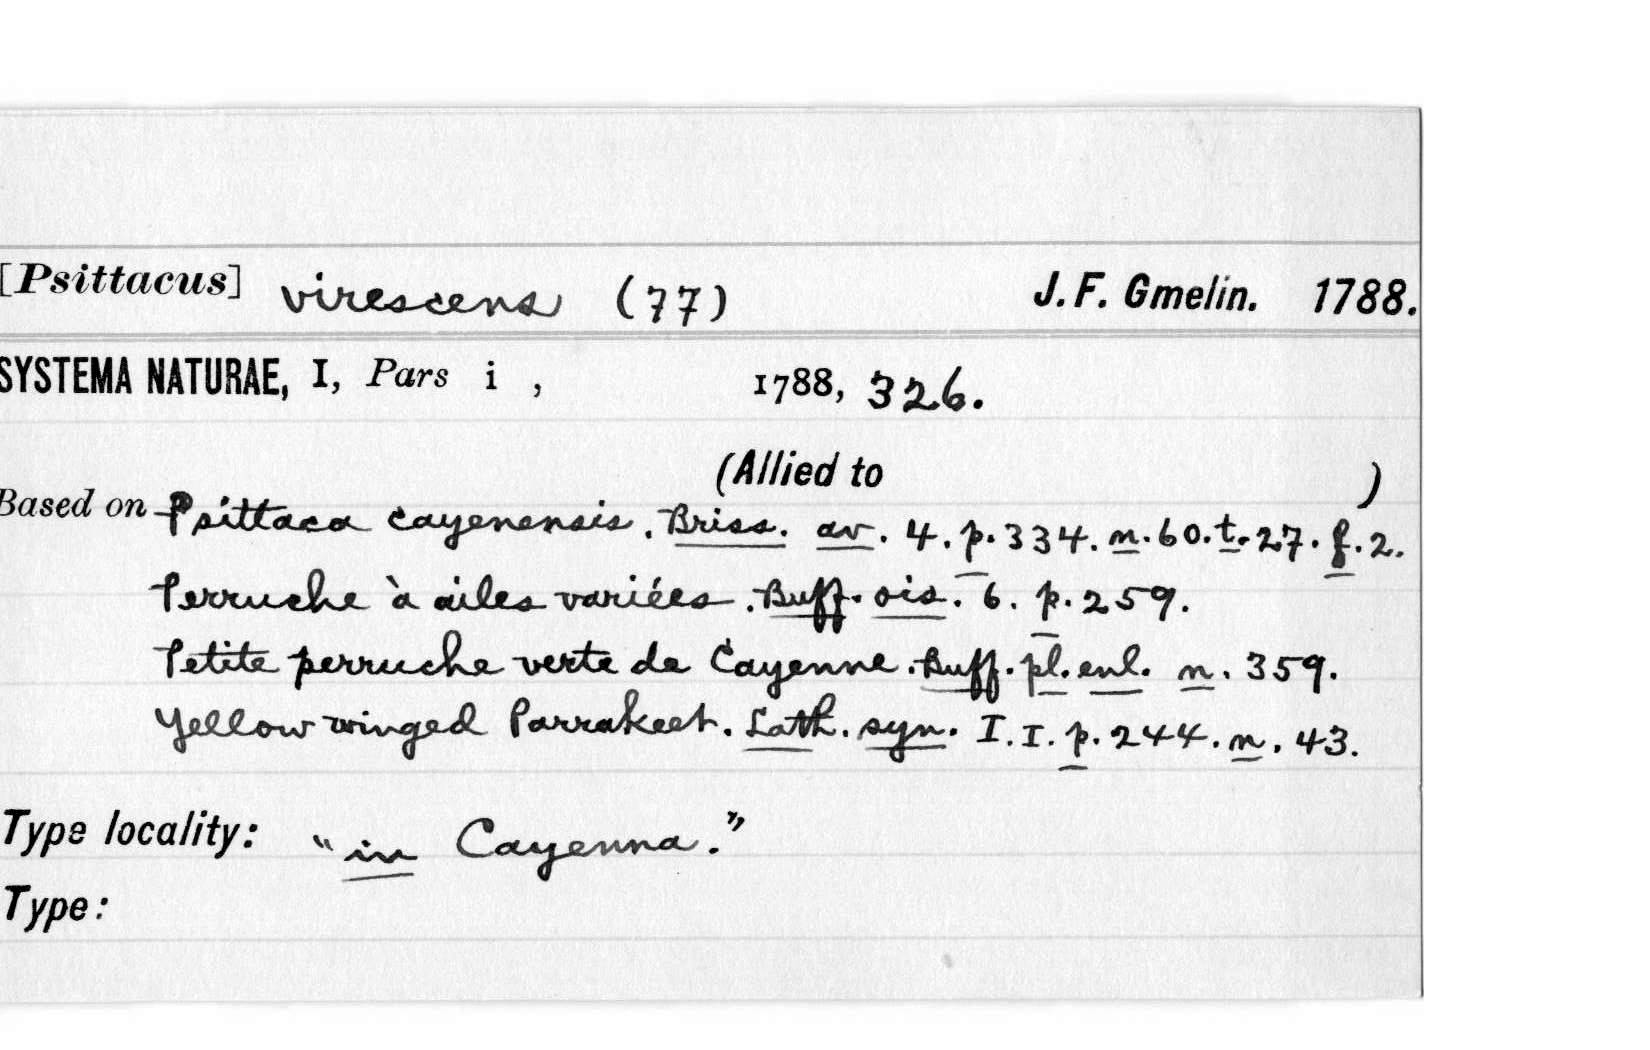 [Psittacus] virescens (77) J. F. Gmelin. 1788.
SYSTEMA NATURAE, I, Pars i , 1788, 326.
(Allied to )
Based on Psittaca cayenensis. Briss. av. 4. p. 334. n. 60. t. 27. f. 2.
Perruche à ailes variées. Buff. ois. 6. p. 259.
Petite perruche verte de Cayenne. Buff. pl. enl. n. 359.
Yellow winged Parrakeet. Lath. syn. I. I. p. 244. n. 43.
Type locality: "in Cayenna."
Type: